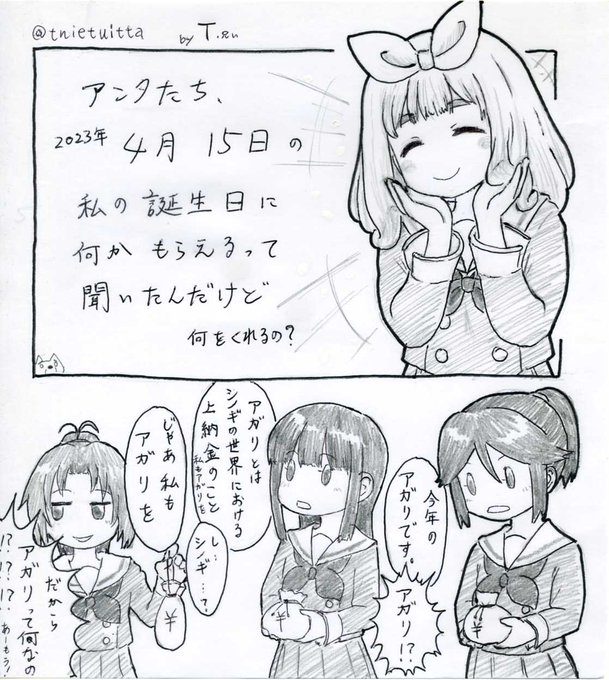 @tnietuitta by T.Ru
アンタたち、
2023年 4月 15日の
私の誕生日に
何か もらえるって
聞いたんだけど
何をくれるの?
今年の
アガリです。
アガリ!?
アガリとは
シノギの世界における
上納金のこと
私もアガリを
しい
シノギ…?
じゃあ私も
アガリを
だから
アガリって何なの
!? !? !?
あーもう!
¥
¥
¥